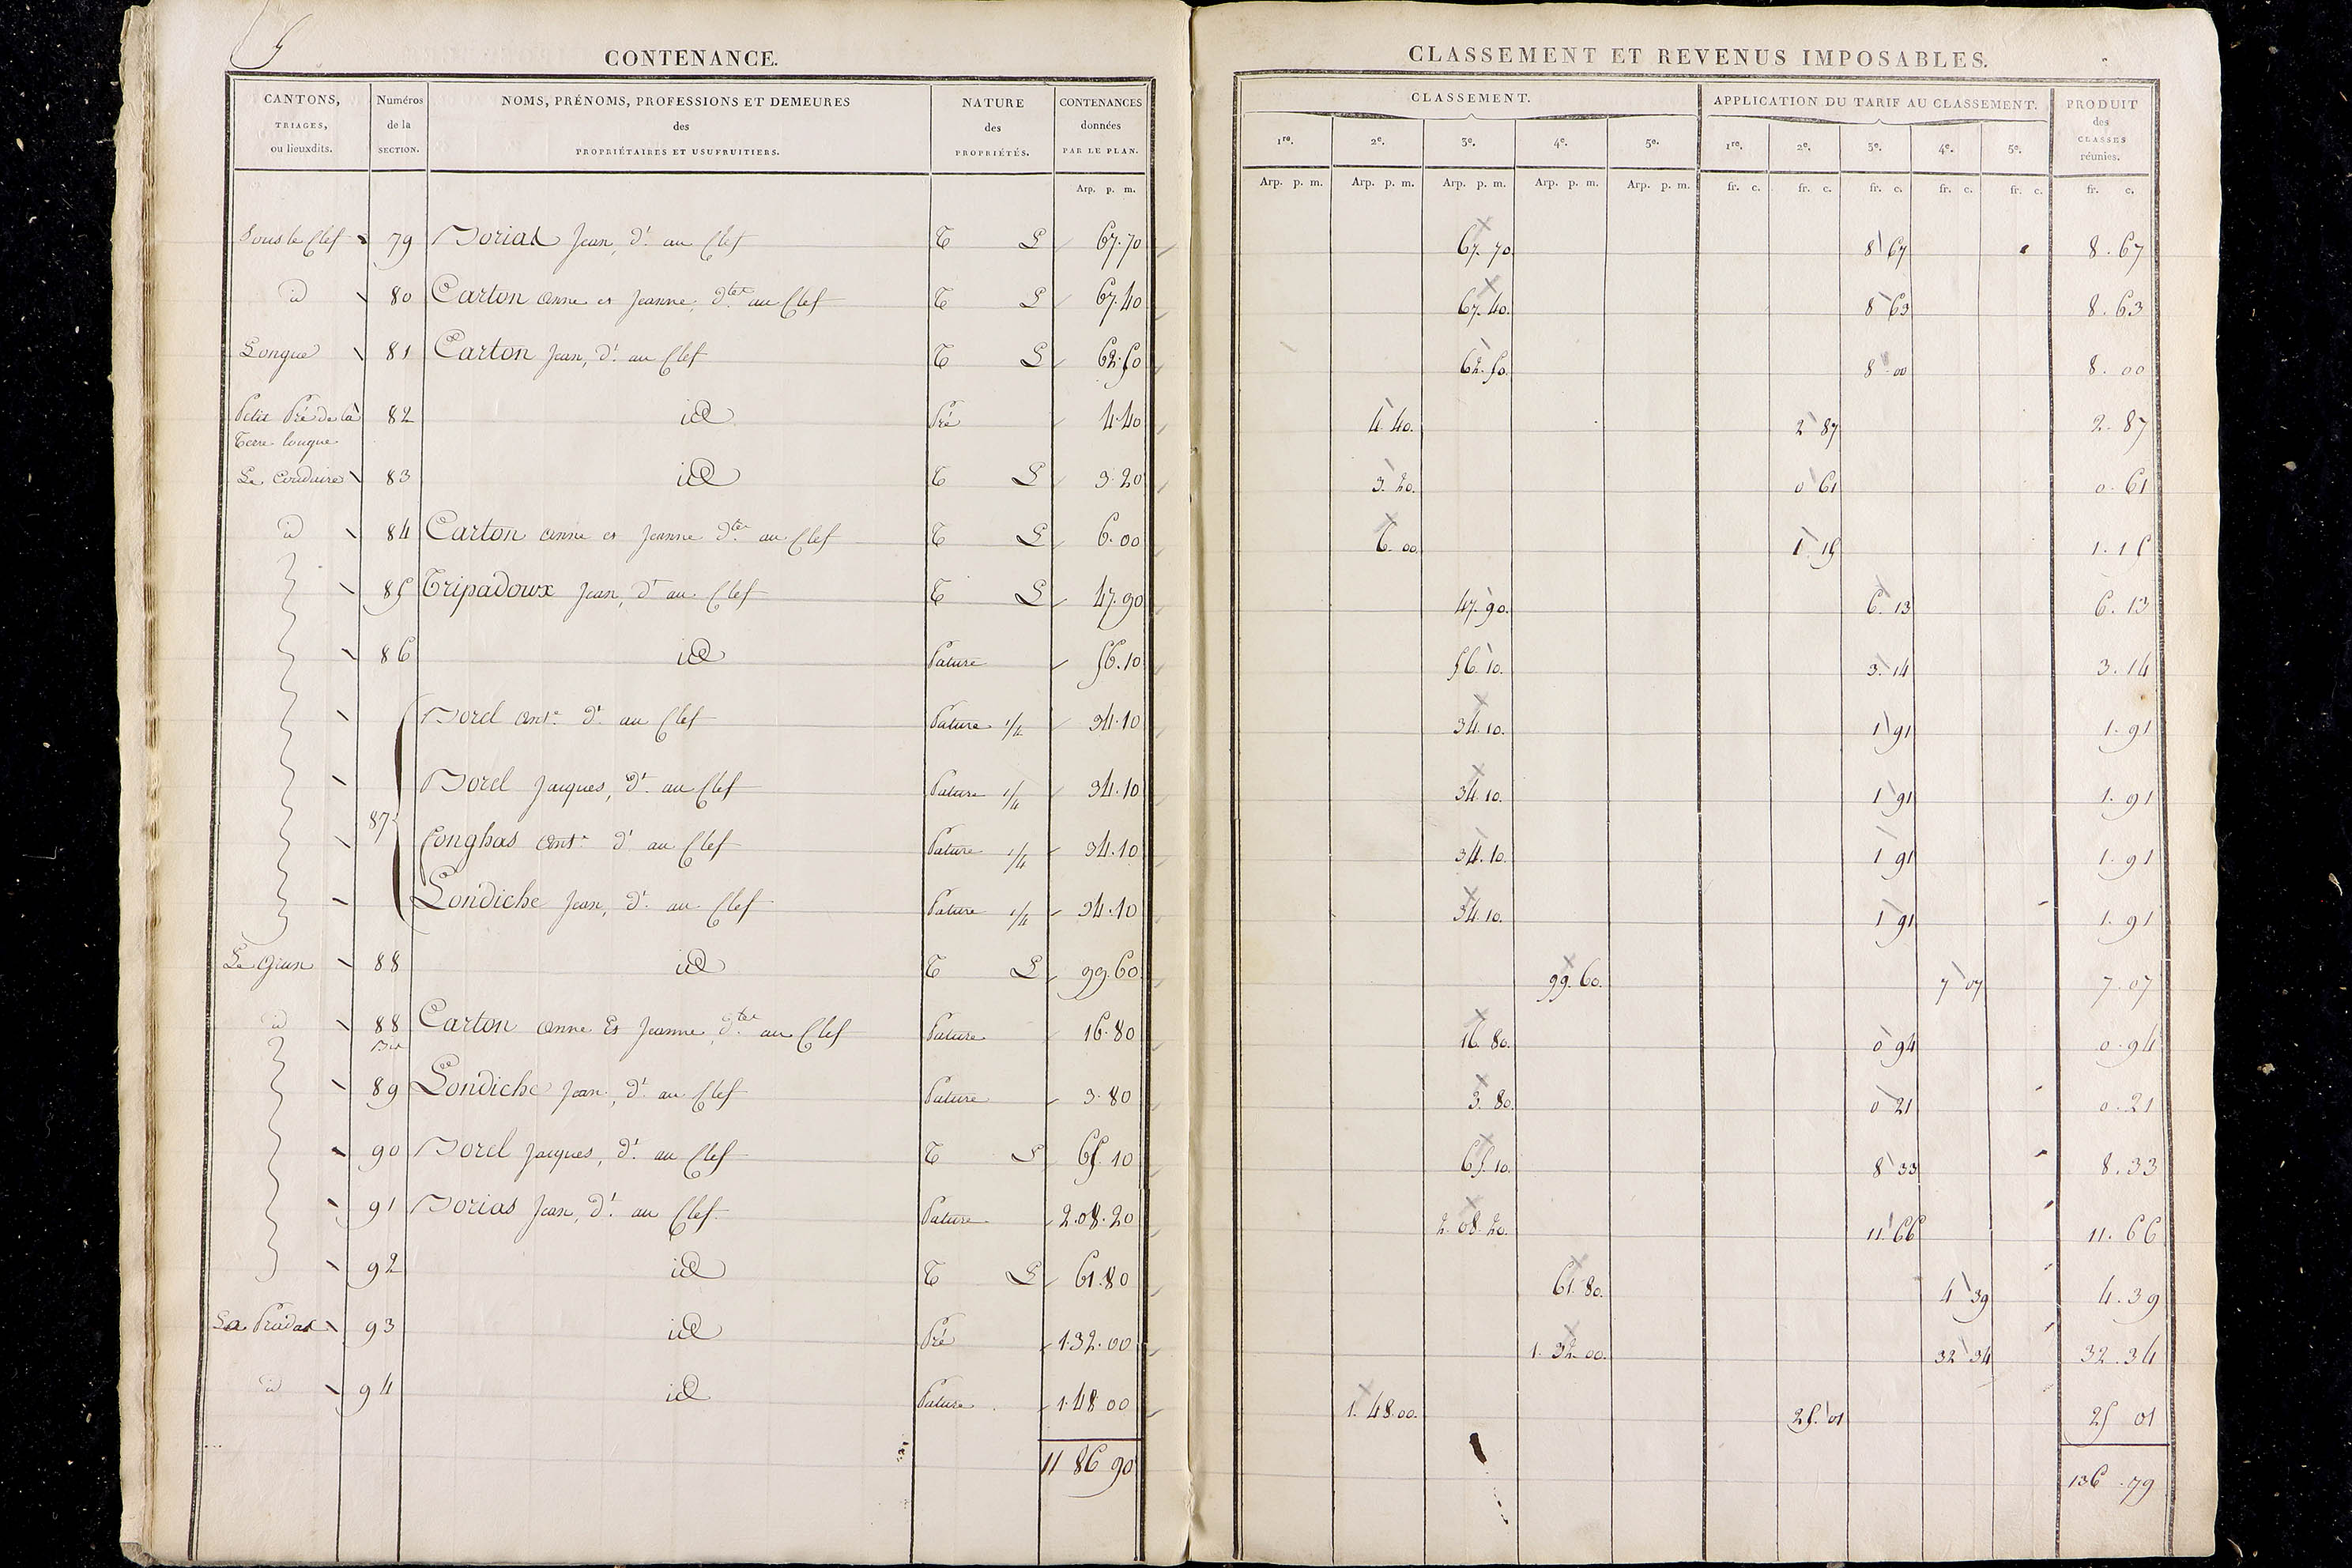 CONTENANCE.
CANTONS, TRIAGES, ou lieuxdits. Numéros de la SECTION. NOMS, PRÉNOMS, PROFESSIONS ET DEMEURES des PROPRIÉTAIRES ET USUFRUITIERS. NATURE des PROPRIÉTÉS. CONTENANCES données PAR LE PLAN.
Arp. p. m.
Sous le Clef 79 Borias Jean, dt. au Clef T L 67.70
id 80 Carton Anne et Jeanne, dtes au Clef T L 67.40
Longue 81 Carton Jean, dt. au Clef T L 62.50
Petit Pré de la Terre longue 82 id Pré 4.40
83 id T L 3.20
id 84 Carton Anne et Jeanne dtes au Clef T L 6.00
85 Tripadoux Jean, dt au Clef T L 47.90
86 id Pature 56.10
87 Borel Ante dt au Clef Pature 1/4 34.10
Borel Jacques, dt au Clef Pature 1/4 34.10
Conghas Ante dt au Clef Pature 1/4 34.10
Londiche Jean, dt. au Clef Pature 1/4 34.10
88 id T L 99.60
id 88 Bis Carton Anne Et Jeanne, dtes au Clef Pature 16.80
89 Londiche Jean, dt au Clef Pature 3.80
90 Borel Jacques, dt. au Clef T L 65.10
91 Borias Jean, dt. au Clef Pature 2.08.20
92 id T L 61.80
93 id Pré 1.32.00
id 94 id Pature 1.48.00
11 86 90
CLASSEMENT ET REVENUS IMPOSABLES.
CLASSEMENT. APPLICATION DU TARIF AU CLASSEMENT. PRODUIT des CLASSES réunies.
1re. 2e. 3e. 4e. 5e. 1re. 2e. 3e. 4e. 5e.
Arp. p. m. Arp. p. m. Arp. p. m. Arp. p. m. Arp. p. m. fr. c. fr. c. fr. c. fr. c. fr. c. fr. c.
67.70. 8 67 8.67
67.40. 8 63 8.63
62.50. 8 00 8.00
4.40. 2 87 2.87
3.20. 0 61 0.61
6.00 1.15 1.15
47.90. 6.13 6.13
56.10. 3.14 3.14
34.10. 1 91 1.91
34.10. 1 91 1.91
34.10. 1 91 1.91
34.10. 1 91 1.91
99.60. 7 07 7.07
16.80. 0 94 0.94
3.80. 0 21 0.21
65.10. 8 33 8.33
2.08.20. 11 66 11.66
61.80. 4 39 4.39
1.32.00. 32 34 32.34
1.48.00. 25.01 25 01
136.79